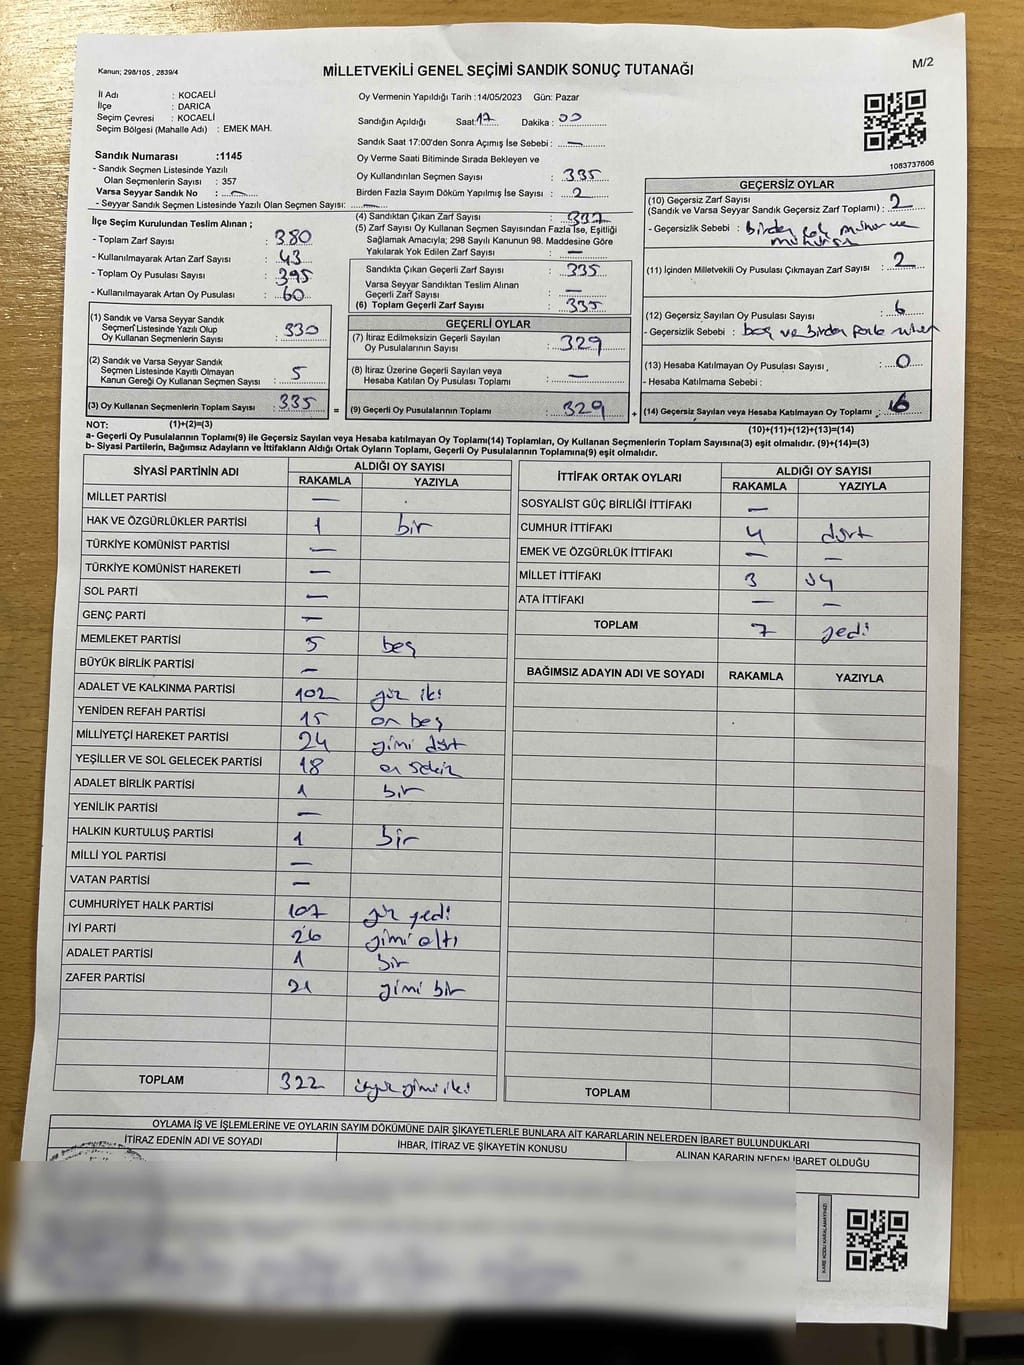 Kanun; 298/105 , 2839/4
MİLLETVEKİLİ GENEL SEÇİMİ SANDIK SONUÇ TUTANAĞI
M/2
İl Adı : KOCAELİ
İlçe : DARICA
Seçim Çevresi : KOCAELİ
Seçim Bölgesi (Mahalle Adı) : EMEK MAH.
Oy Vermenin Yapıldığı Tarih :14/05/2023 Gün: Pazar
Sandığın Açıldığı Saat: 17 Dakika : 00
Sandık Saat 17:00'den Sonra Açımış İse Sebebi : —
Oy Verme Saati Bitiminde Sırada Bekleyen ve
Oy Kullandırılan Seçmen Sayısı : 335
Birden Fazla Sayım Döküm Yapılmış İse Sayısı : 2
Sandık Numarası :1145
- Sandık Seçmen Listesinde Yazılı
Olan Seçmenlerin Sayısı : 357
Varsa Seyyar Sandık No : —
- Seyyar Sandık Seçmen Listesinde Yazılı Olan Seçmen Sayısı: —
1083737606
İlçe Seçim Kurulundan Teslim Alınan ;
- Toplam Zarf Sayısı : 380
- Kullanılmayarak Artan Zarf Sayısı : 43
- Toplam Oy Pusulası Sayısı : 395
- Kullanılmayarak Artan Oy Pusulası : 60
(1) Sandık ve Varsa Seyyar Sandık
Seçmen Listesinde Yazılı Olup
Oy Kullanan Seçmen Sayısı : 330
(2) Sandık ve Varsa Seyyar Sandık
Seçmen Listesinde Kayıtlı Olmayan
Kanun Gereği Oy Kullanan Seçmen Sayısı : 5
(3) Oy Kullanan Seçmenlerin Toplam Sayısı : 335 =
(4) Sandıktan Çıkan Zarf Sayısı : 337
(5) Zarf Sayısı Oy Kullanan Seçmen Sayısından Fazla İse, Eşitliği
Sağlamak Amacıyla; 298 Sayılı Kanunun 98. Maddesine Göre
Yakılarak Yok Edilen Zarf Sayısı : —
Sandıkta Çıkan Geçerli Zarf Sayısı : 335
Varsa Seyyar Sandıktan Teslim Alınan
Geçerli Zarf Sayısı : —
(6) Toplam Geçerli Zarf Sayısı : 335
GEÇERLİ OYLAR
(7) İtiraz Edilmeksizin Geçerli Sayılan
Oy Pusulalarının Sayısı : 329
(8) İtiraz Üzerine Geçerli Sayılan veya
Hesaba Katılan Oy Pusulası Toplamı : —
(9) Geçerli Oy Pusulalarının Toplamı : 329 +
GEÇERSİZ OYLAR
(10) Geçersiz Zarf Sayısı
(Sandık ve Varsa Seyyar Sandık Geçersiz Zarf Toplamı) : 2
- Geçersizlik Sebebi : birden çok
(11) İçinden Milletvekili Oy Pusulası Çıkmayan Zarf Sayısı : 2
(12) Geçersiz Sayılan Oy Pusulası Sayısı : 6
- Geçersizlik Sebebi : boş ve birden fazla
(13) Hesaba Katılmayan Oy Pusulası Sayısı : 0
- Hesaba Katılmama Sebebi :
(14) Geçersiz Sayılan veya Hesaba Katılmayan Oy Toplamı : 6
NOT: (1)+(2)=(3)
(10)+(11)+(12)+(13)=(14)
a- Geçerli Oy Pusulalarının Toplamı(9) ile Geçersiz Sayılan veya Hesaba katılmayan Oy Toplamı(14) Toplamları, Oy Kullanan Seçmenlerin Toplam Sayısına(3) eşit olmalıdır. (9)+(14)=(3)
b- Siyasi Partilerin, Bağımsız Adayların ve İttifakların Aldığı Ortak Oyların Toplamı, Geçerli Oy Pusulalarının Toplamına(9) eşit olmalıdır.
SİYASİ PARTİNİN ADI ALDIĞI OY SAYISI
RAKAMLA YAZIYLA
MİLLET PARTİSİ —
HAK VE ÖZGÜRLÜKLER PARTİSİ 1 bir
TÜRKİYE KOMÜNİST PARTİSİ —
TÜRKİYE KOMÜNİST HAREKETİ —
SOL PARTİ —
GENÇ PARTİ —
MEMLEKET PARTİSİ 5 beş
BÜYÜK BİRLİK PARTİSİ —
ADALET VE KALKINMA PARTİSİ 102 yüz iki
YENİDEN REFAH PARTİSİ 15 on beş
MİLLİYETÇİ HAREKET PARTİSİ 24 yirmi dört
YEŞİLLER VE SOL GELECEK PARTİSİ 18 on sekiz
ADALET BİRLİK PARTİSİ 1 bir
YENİLİK PARTİSİ —
HALKIN KURTULUŞ PARTİSİ 1 bir
MİLLİ YOL PARTİSİ —
VATAN PARTİSİ —
CUMHURİYET HALK PARTİSİ 107 yüz yedi
İYİ PARTİ 26 yirmi altı
ADALET PARTİSİ 1 bir
ZAFER PARTİSİ 21 yirmi bir
TOPLAM 322 üçyüz yirmi iki
İTTİFAK ORTAK OYLARI ALDIĞI OY SAYISI
RAKAMLA YAZIYLA
SOSYALİST GÜÇ BİRLİĞİ İTTİFAKI —
CUMHUR İTTİFAKI 4 dört
EMEK VE ÖZGÜRLÜK İTTİFAKI — —
MİLLET İTTİFAKI 3 üç
ATA İTTİFAKI — —
TOPLAM 7 yedi
BAĞIMSIZ ADAYIN ADI VE SOYADI RAKAMLA YAZIYLA
TOPLAM
OYLAMA İŞ VE İŞLEMLERİNE VE OYLARIN SAYIM DÖKÜMÜNE DAİR ŞİKAYETLERLE BUNLARA AİT KARARLARIN NELERDEN İBARET BULUNDUKLARI
İTİRAZ EDENİN ADI VE SOYADI İHBAR, İTİRAZ VE ŞİKAYETİN KONUSU ALINAN KARARIN NEDEN İBARET OLDUĞU
KARE KODU KARALAMAYINIZ!